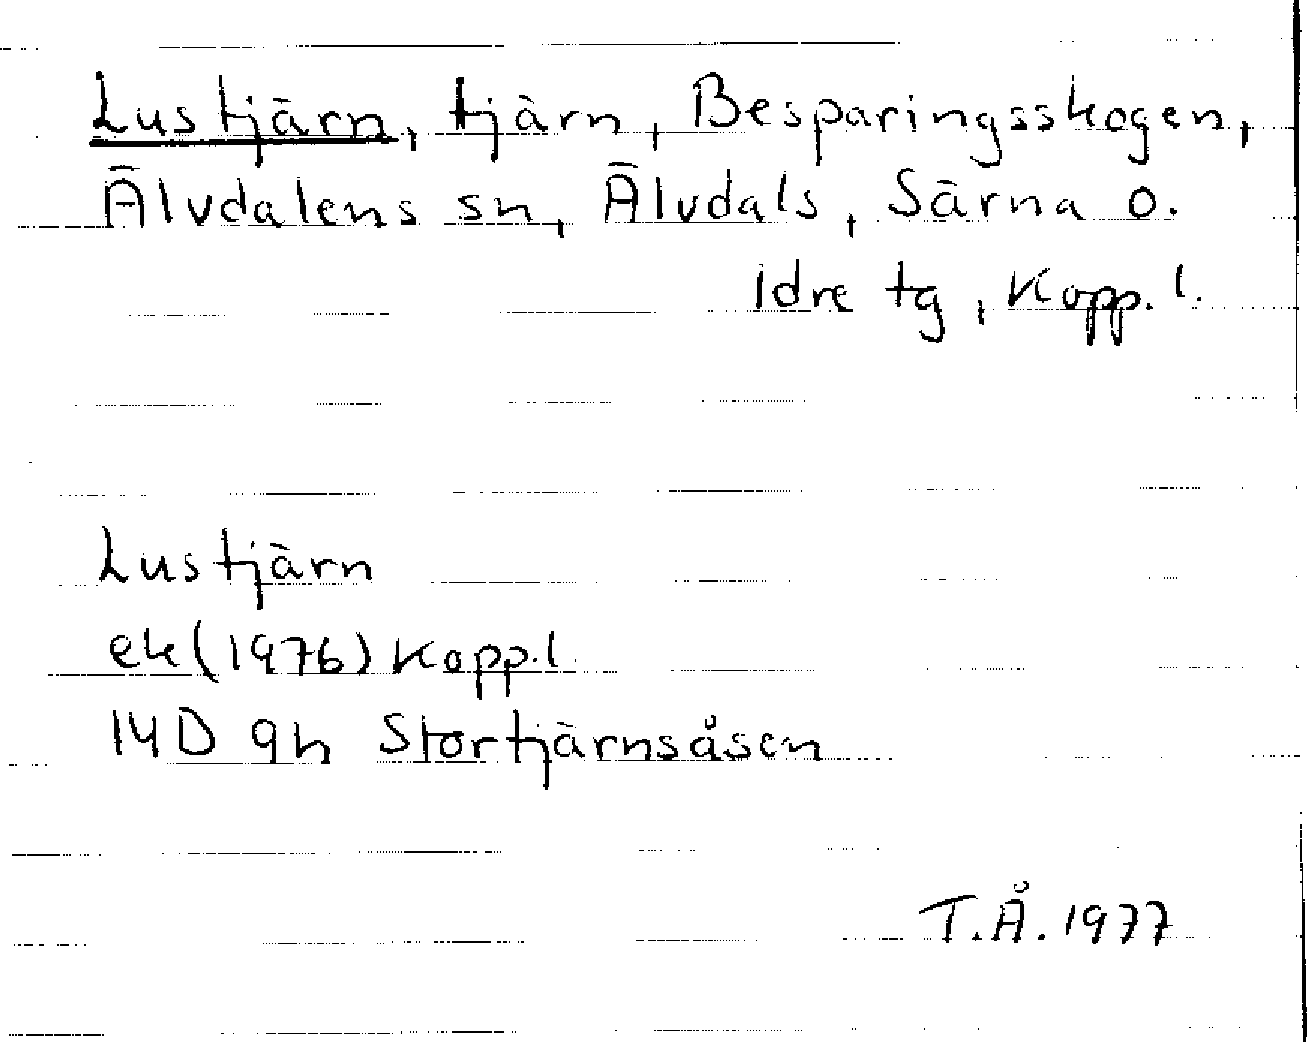 Lustjärn, tjärn, Besparingsskogen,
Älvdalens sn, Älvdals, Särna o.
Idre tg, Kopp. l.
Lustjärn
ek (1976) Kopp. l
14D 9h Stortjärnsåsen
T.Å. 1977